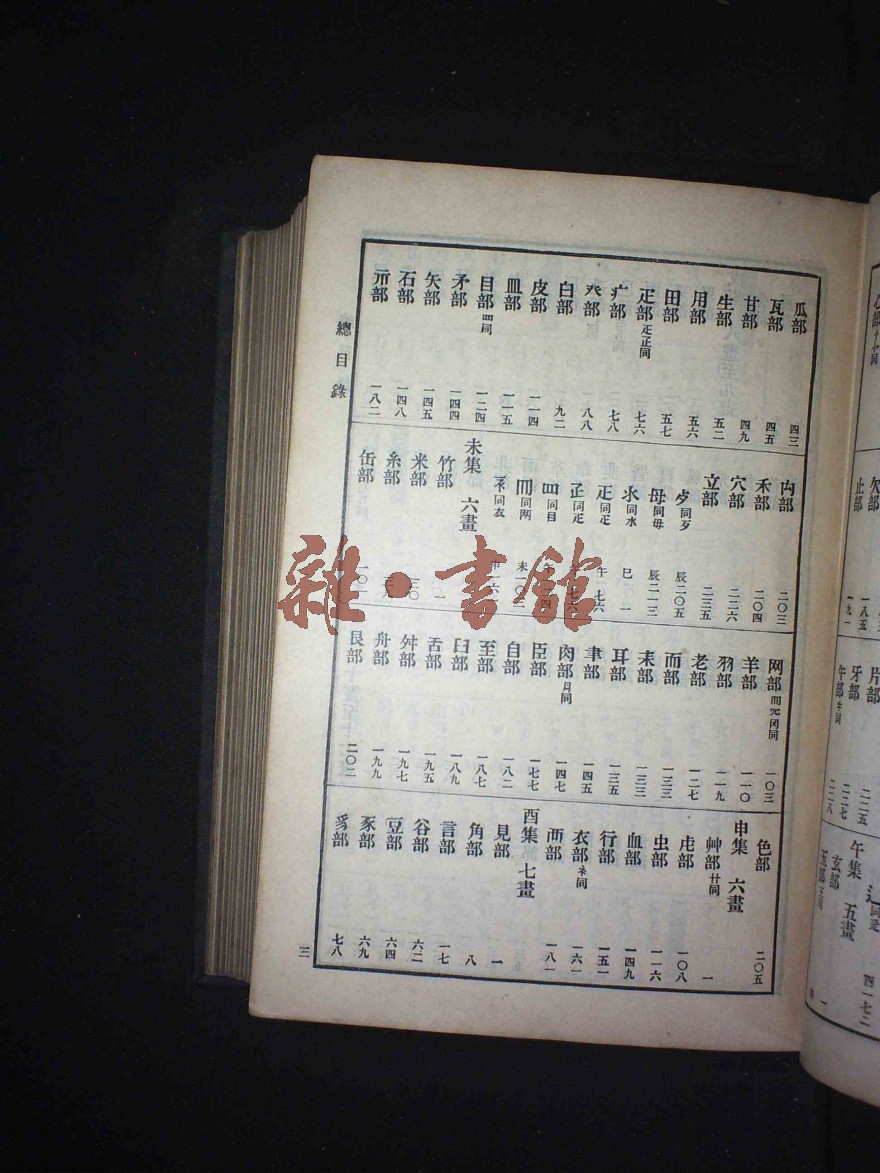 瓜部 四三
瓦部 四五
甘部 四九
生部 五二
用部 五六
田部 五七
疋部 𤴔正同 七六
疒部 七八
癶部 八八
白部 九二
皮部 一一四
皿部 一一五
目部 罒同 一二四
矛部 一四四
矢部 一四五
石部 一四八
示部 一八二
禸部 二〇三
禾部 二〇四
穴部 二二六
立部 二三五
歺 同歹 辰二〇五
母 同毋 辰二一三
氺 同水 巳一
疋 同疋 午七六
罒 同目
同网 未一〇三
衤 同衣
未集 六畫
竹部 一
米部 三〇
糸部
缶部
网部 一〇三
羊部 一一〇
羽部 一一九
老部 一二七
而部 一三三
耒部 一三三
耳部 一三五
聿部 一四五
肉部 月同 一四七
臣部 一七七
自部 一八二
至部 一八七
臼部 一八九
舌部 一九五
舛部 一九七
舟部 一九九
艮部 二〇二
色部 二〇五
申集 六畫
艸部 艹同 一
虍部 一〇八
虫部 一一六
血部 一四九
行部 一五一
衣部 衤同 一六一
襾部 一八一
酉集 七畫
見部 一
角部 八
言部 一七
谷部 六二
豆部 六四
豕部 六九
豸部 七八
總目錄
三
雜·書館
欠部
止部
片部 二二五
牙部 二二七
牛部 牜同 二二八
午集 五畫
玄部 一
玉部